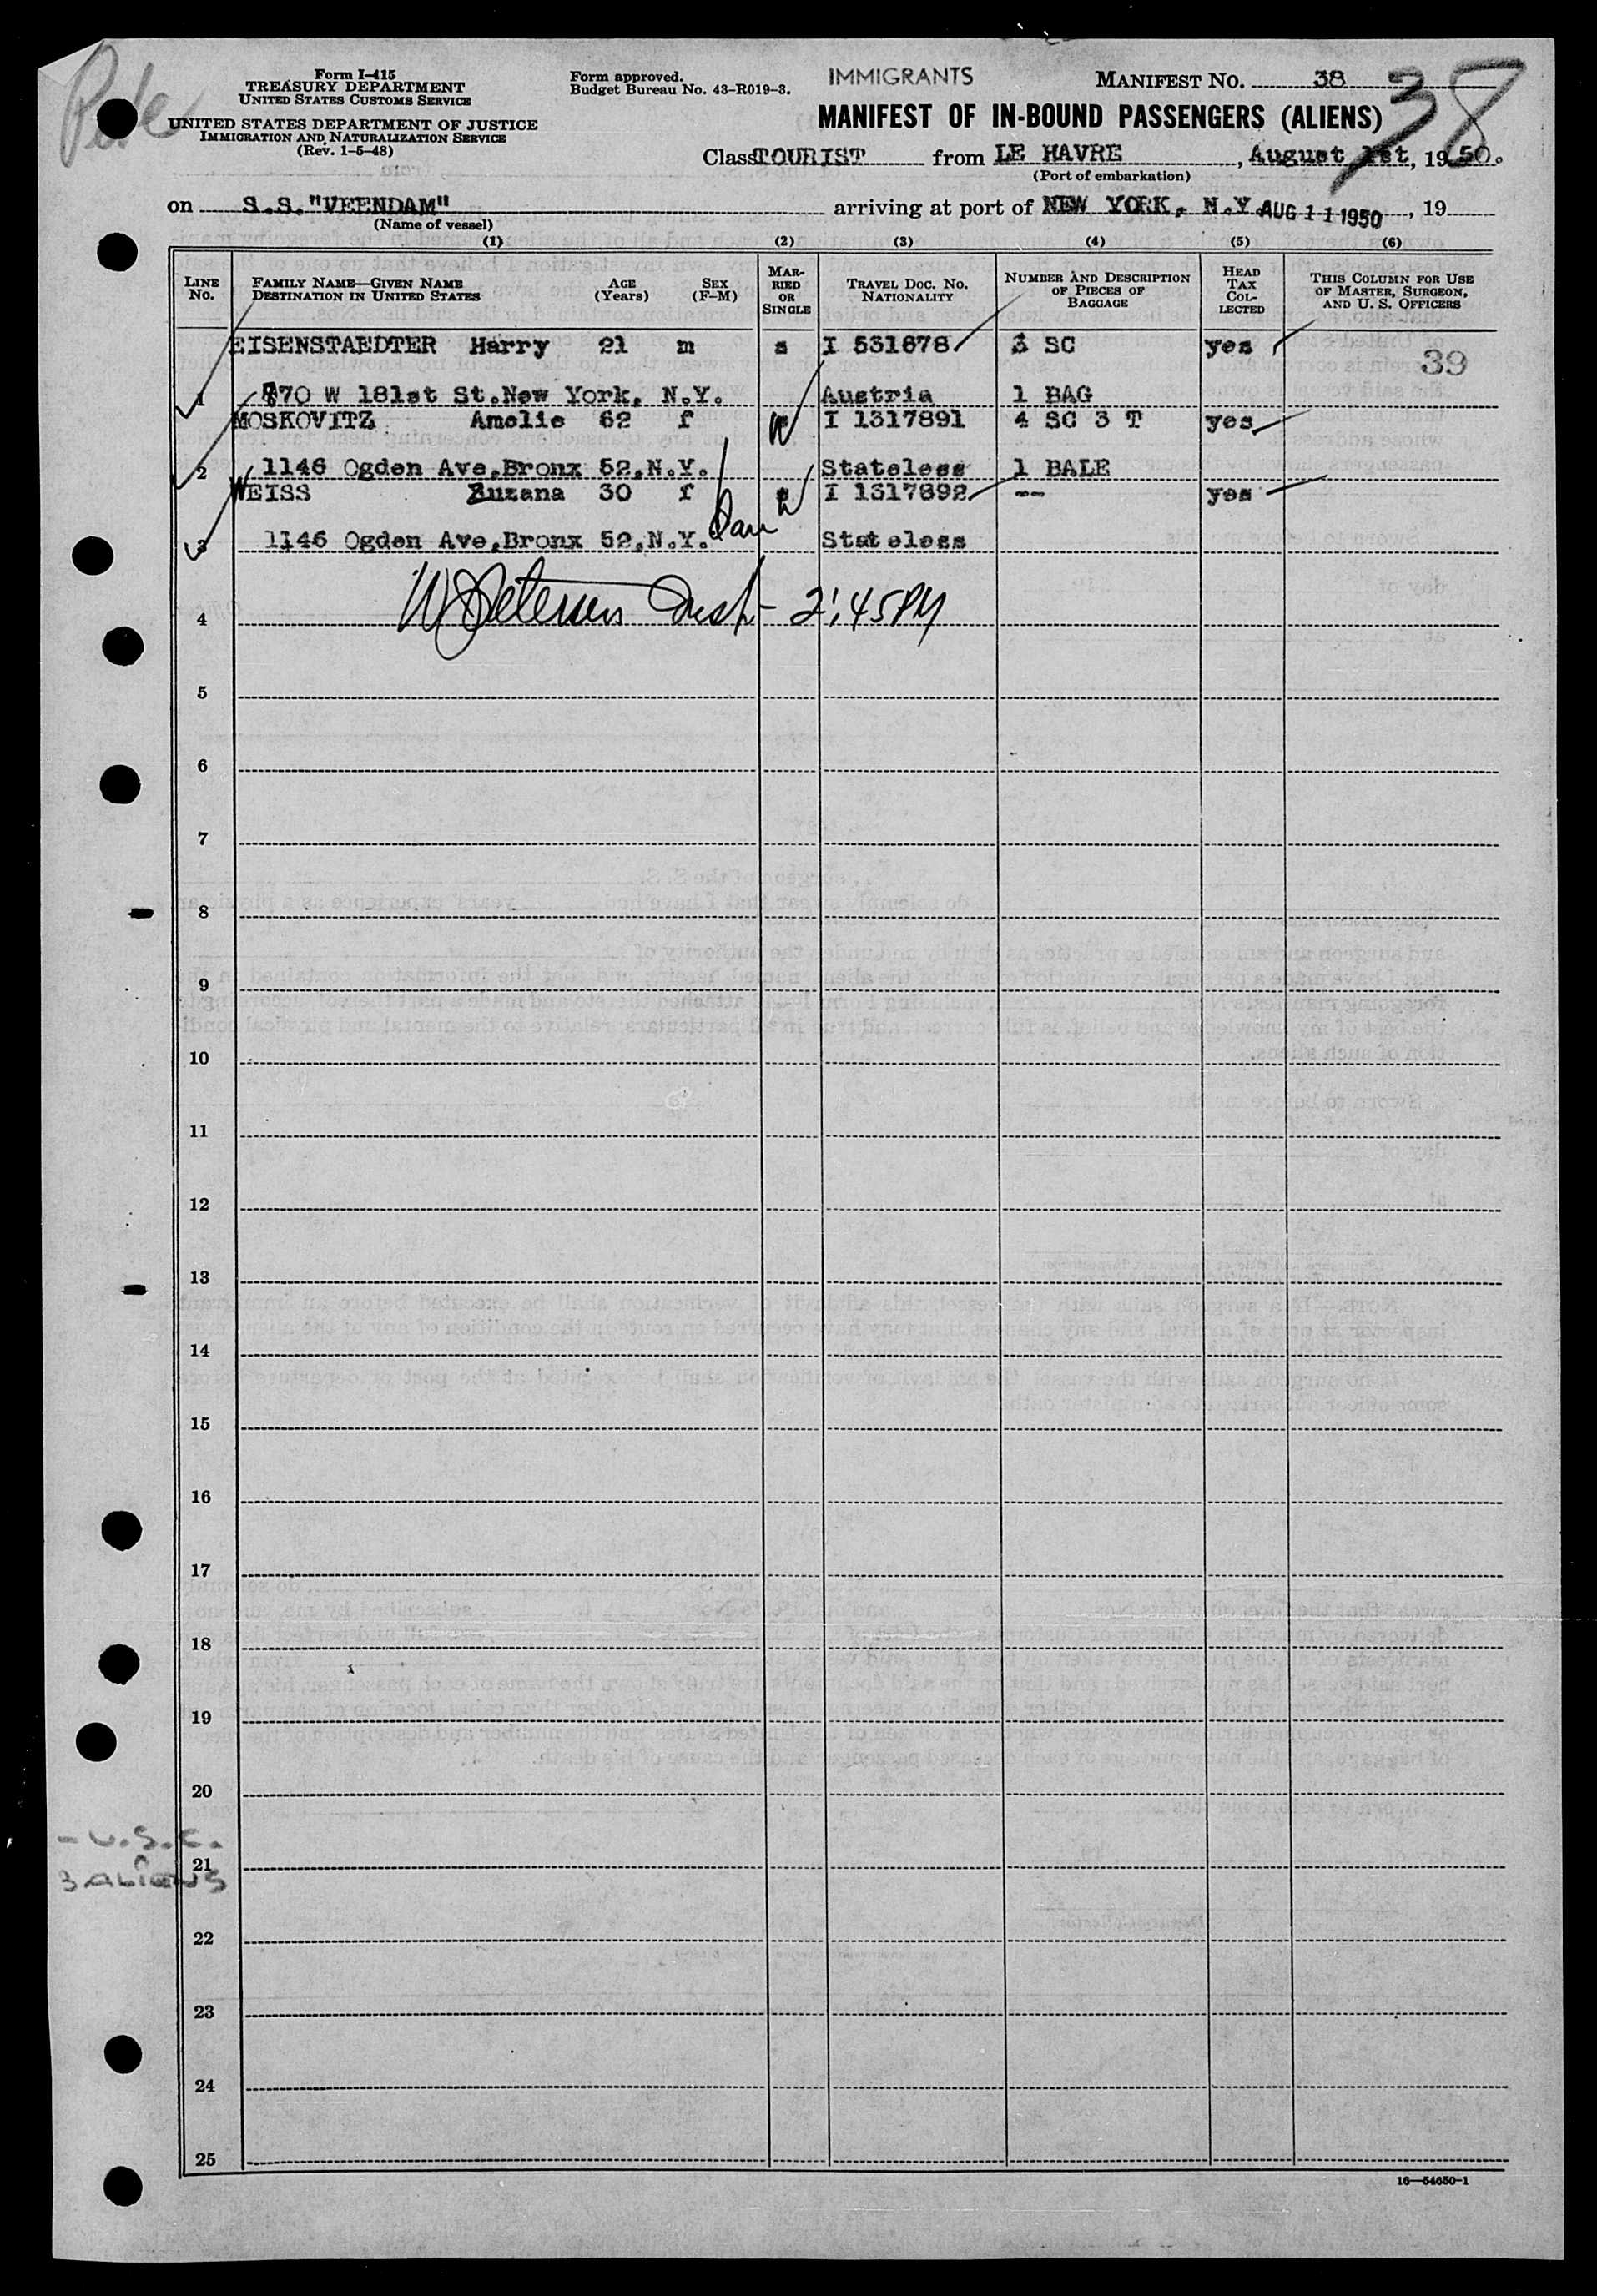 Form I-415
TREASURY DEPARTMENT
UNITED STATES CUSTOMS SERVICE
UNITED STATES DEPARTMENT OF JUSTICE
IMMIGRATION AND NATURALIZATION SERVICE
(Rev. 1-5-48)
Form approved.
Budget Bureau No. 43-R019-3.
IMMIGRANTS
MANIFEST NO. 38
38
MANIFEST OF IN-BOUND PASSENGERS (ALIENS)
Class TOURIST from LE HAVRE, August 1st, 1950.
(Port of embarkation)
on S.S."VEENDAM" arriving at port of NEW YORK, N.Y. AUG 11 1950, 19
(Name of vessel)
(1) (2) (3) (4) (5) (6)
LINE No.
FAMILY NAME—GIVEN NAME
DESTINATION IN UNITED STATES
AGE
(Years)
SEX
(F-M)
MAR-
RIED
OR
SINGLE
TRAVEL DOC. NO.
NATIONALITY
NUMBER AND DESCRIPTION
OF PIECES OF
BAGGAGE
HEAD
TAX
COL-
LECTED
THIS COLUMN FOR USE
OF MASTER, SURGEON,
AND U. S. OFFICERS
EISENSTAEDTER Harry 21 m s I 531678 3 SC yes
39
1 870 W 181st St.New York, N.Y. Austria 1 BAG
MOSKOVITZ Amelie 62 f W I 1317891 4 SC 3 T yes
2 1146 Ogden Ave,Bronx 52,N.Y. Stateless 1 BALE
WEISS Zuzana 30 f W I 1317892 -- yes
3 1146 Ogden Ave,Bronx 52,N.Y. Stateless
4 W Petersen Insp - 2:45 PM
5
6
7
8
9
10
11
12
13
14
15
16
17
18
19
20
- U.S.C.
21
3 ALIENS
22
23
24
25
16—54650-1